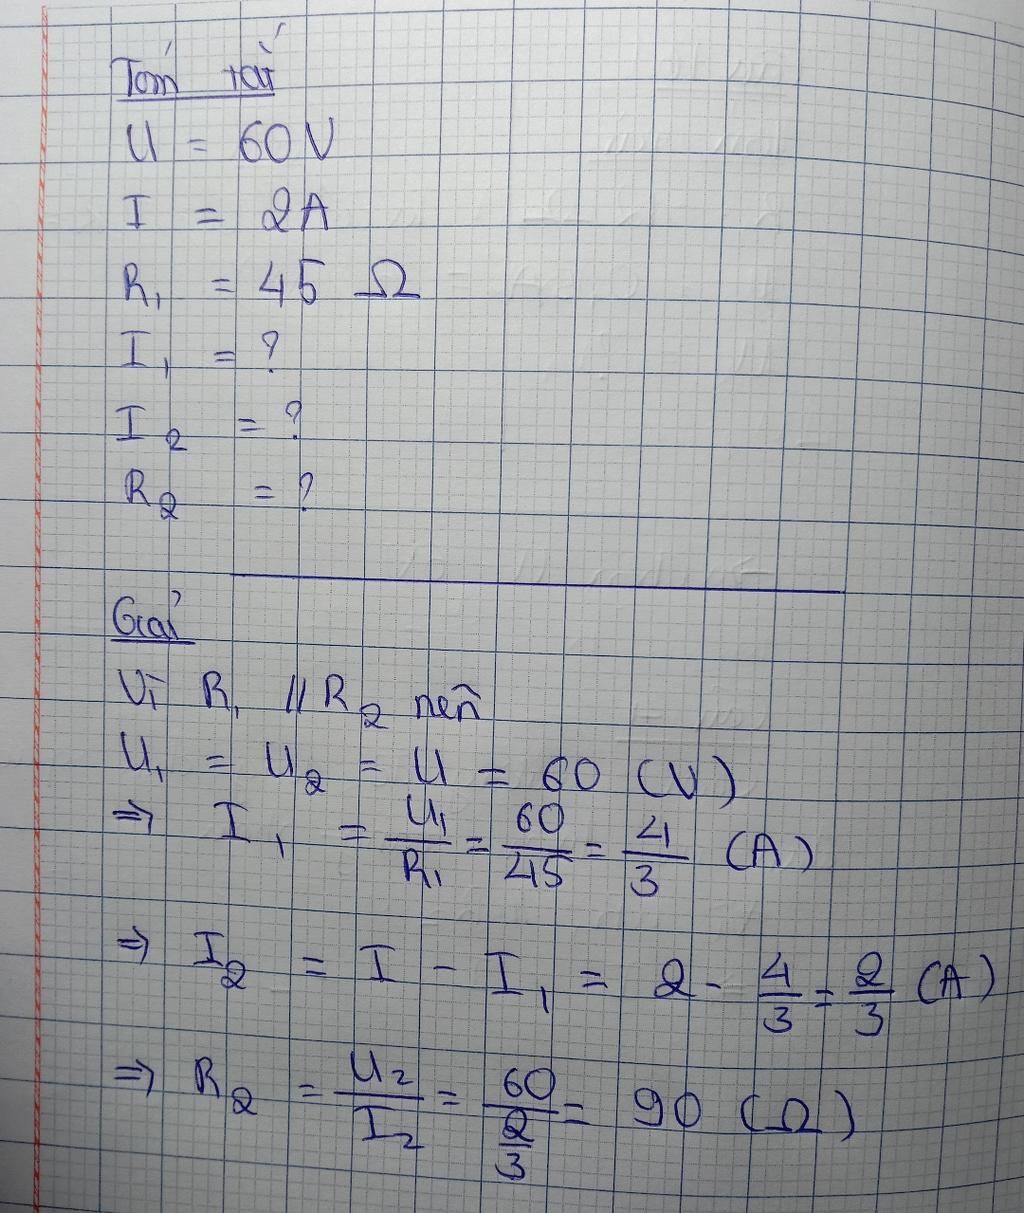 Tóm tắt
U = 60V
I = 2A
R₁ = 45 Ω
I₁ = ?
I₂ = ?
R₂ = ?
Giải
Vì R₁ // R₂ nên
U₁ = U₂ = U = 60 (V)
=> I₁ = U₁/R₁ = 60/45 = 4/3 (A)
=> I₂ = I - I₁ = 2 - 4/3 = 2/3 (A)
=> R₂ = U₂/I₂ = 60/(2/3) = 90 (Ω)